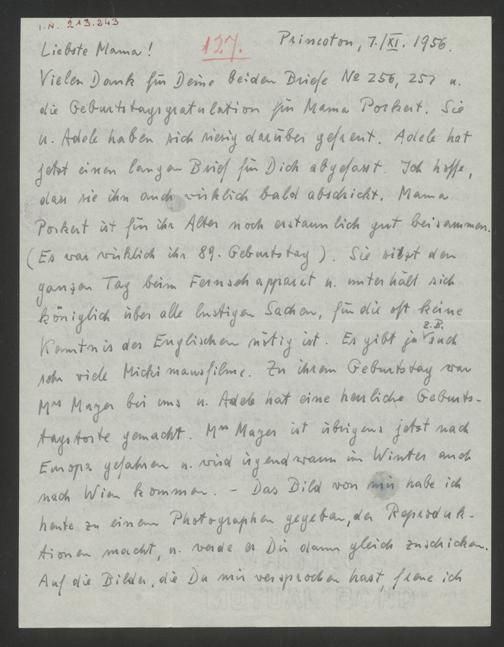 I.N. 213.243
127.
Princeton, 7./XI. 1956.
Liebste Mama!
Vielen Dank für Deine beiden Briefe No 256, 257 u.
die Geburtstagsgratulation für Mama Porkert. Sie
u. Adele haben sich riesig darüber gefreut. Adele hat
jetzt einen langen Brief für Dich abgefasst. Ich hoffe,
dass sie ihn auch wirklich bald abschickt. Mama
Porkert ist für ihr Alter noch erstaunlich gut beisammen.
(Es war wirklich ihr 89. Geburtstag). Sie sitzt den
ganzen Tag beim Fernsehapparat u. unterhält sich
königlich über alle lustigen Sachen, für die oft keine
Kenntnis des Englischen nötig ist. Es gibt ja z.B. auch
sehr viele Mickimausfilme. Zu ihrem Geburtstag war
Mrs Mayer bei uns u. Adele hat eine herrliche Geburts-
tagstorte gemacht. Mrs Mayer ist übrigens jetzt nach
Europa gefahren u. wird irgendwann im Winter auch
nach Wien kommen. – Das Bild von mir habe ich
heute zu einem Photographen gegeben, der Reproduk-
tionen macht, u. werde es Dir dann gleich zuschicken.
Auf die Bilder, die Du mir versprochen hast, freue ich